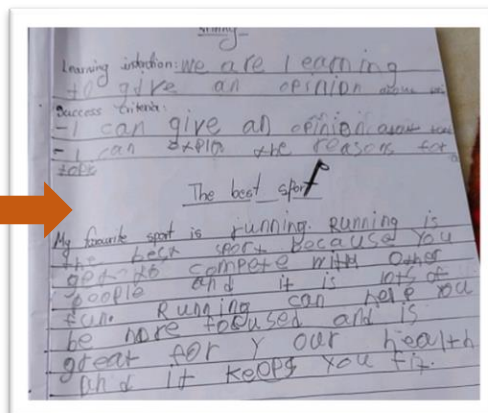 Learning intention: We are learning
to give an opinion about
Success Criteria:
- I can give an opinion about
- I can explin the reasons for
topic
The best sport
My favourite sport is running. Running is
the best sport because you
get to compete with other
people and it is lots of
fun. Running can help you
be more focused and is
great for your health
and it keeps you fit.